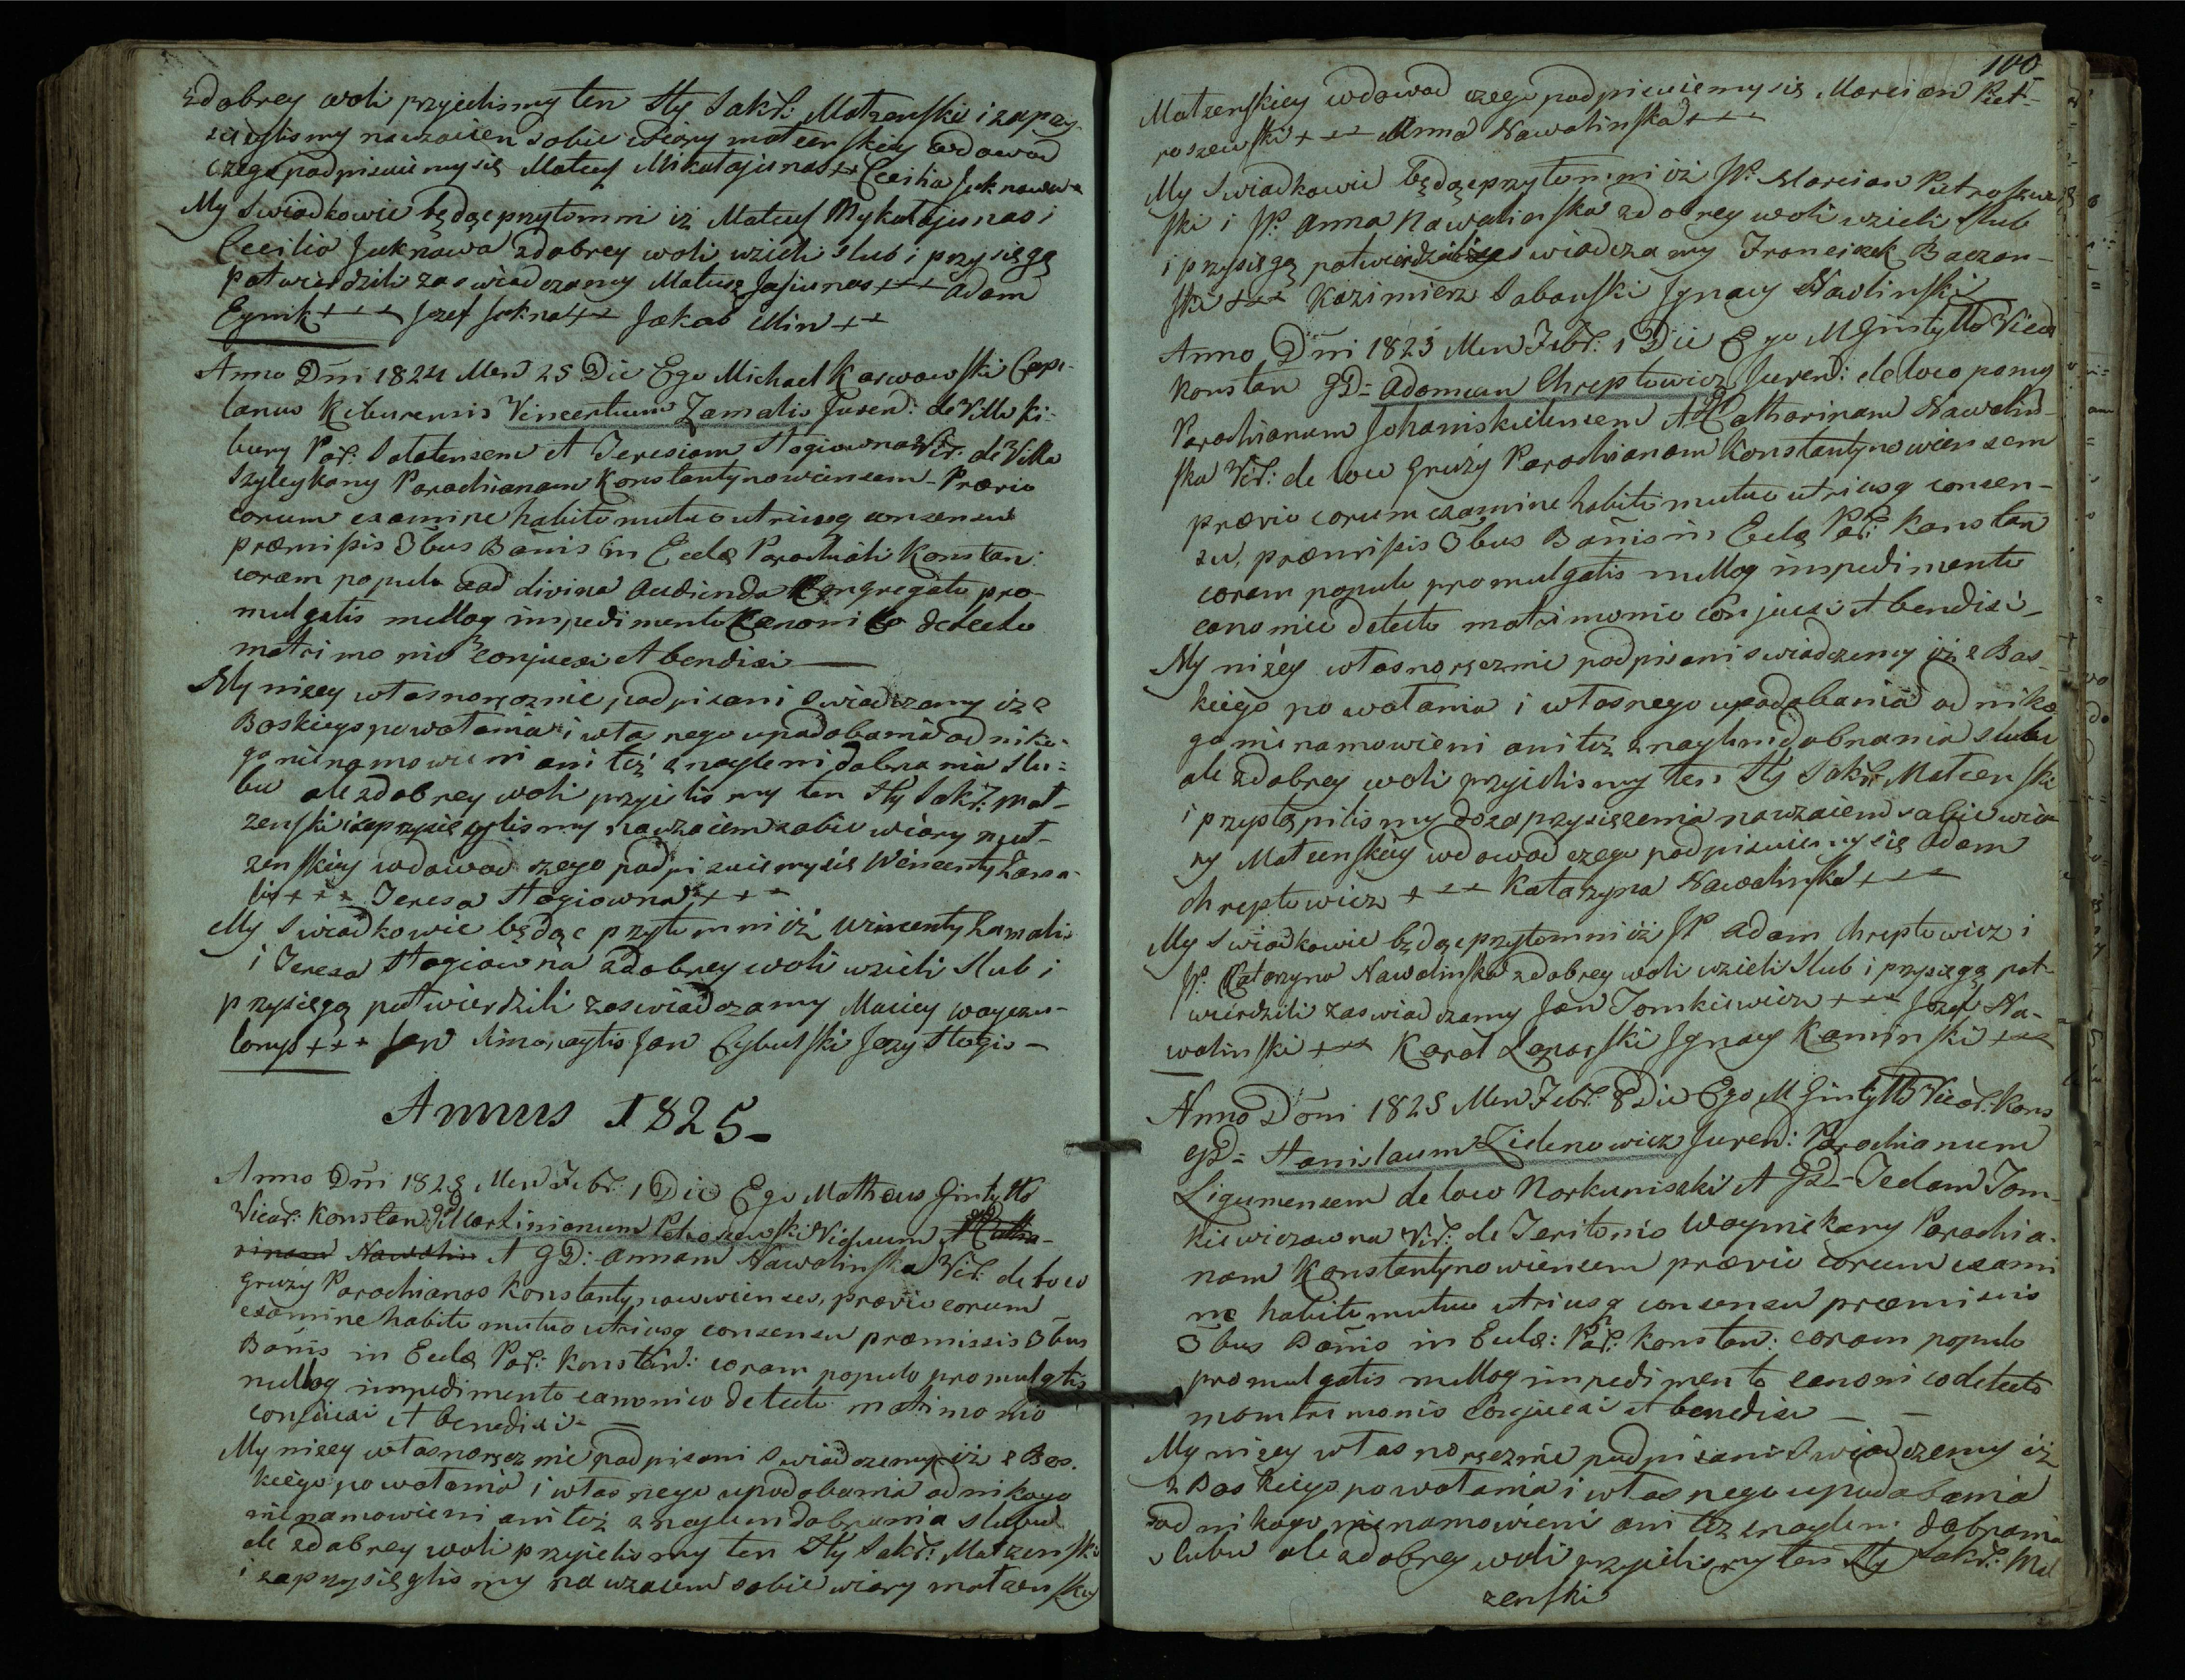 zdobrey woli przyjelismy ten Sty Sakr: Matzenski i zaprzy-
sieglismy nawzaiem sobie wiary matzenskiey wdowod
czego podpisuiemysię Mateusz Mikołajunas ++ Cecilia Juknawa
My Swiadkowie będąc przytomni iż Mateusz Mykołajunas i
Cecilia Juknawa zdobrey woli wzieli slub i przysięgę
potwierdzili zaswiadczamy Mateusz Jasiunas +++ Adam
Eynik +++ Jozef Jukna ++ Jakob Min ++
Anno Dni 1824 Men 25 Die Ego Michael Karwowski Cape-
lanus Kiburensis Vincentium Zamalis Juven: de Villa Ki-
bury Par: Salatensem et Teresiam Stagiowna Vir: de Villa
Szyleykany Parochianam Konstantynowiensem - Prævio
eorum examine habito mutuo utriusq consensu
præmissis 3bus Banis in Eccla Parochiali Konstan:
coram populo ad divina audienda Congregato pro-
mulgatis nulloq impedimento Canonico detecto
matrimonio conjunxi et bendixi —
My nizey własnoręcznie podpisani Swiadczamy iż z
Boskiego powołania i własnego upodobania od niko-
go nie namowieni ani też z nagleni do brania Slu-
bu ale zdobrey woli przyielismy ten Sty Sakr: Mał-
zenski i zaprzysięglismy nawzaiem sobie wiary mał-
zenskiey wdowod czego podpisuiemysię Wincenty Zama-
lis +++ Teresa Stagiowna +++
My Swiadkowie będąc przytomni iż Wincenty Zamalis
i Teresa Stagiowna zdobrey woli wzieli Slub i
przysięgą potwierdzili zaswiadczamy Maciey
+++ Jan Jan Cybulski Jerzy Stagis —
Annus 1825 -
Anno Dni 1825 Men Febr: 1 Die Ego Matheus Gintyłło
Vicar: Konstan GD Martinianum Petroszewski Viduum
et GD: Annam Nawolinska Vir: de loco
Gruży Parochianos Konstantynowienses, prævio eorum
examine habito mutuo utriusq consensu præmissis 3bus
Banis in Eccla Par: Konstan: coram populo promulgtis
nulloq impedimento canonico detecto matimonio
conjuxi et benedixi -
My nizey własnoręcznie podpisani Swiadczemy iż z Bos-
kiego powołania i własnego upodobania od nikogo
nie namowieni ani też z nagleni do brania slubu
ale zdobrey woli przyielismy ten Sty Sakr: Matzenski
i zaprzysięglismy na wzaiem sobie wiary małzenskiey
100
Matzenskiey wdowod czego podpisuiemysię Marcian Piet-
roszewski +++ Anna Nawolinska +++
My Swiadkowie będąc przytomni iż JP. Marcian Pietroszew
ski i JP. Anna Nawolinska zdobrey woli wzieli Slub
i przysięgą potwierdzili zaswiadczamy Franciszek Baczan-
ski +++ Kazimierz Sabanski Jgnacy Nawlinski
Anno Dni 1825 Men Febr: 1 Die Ego M Gintyłło Vicar
Konstan GD= Adamum Chreptowicz Juven: de loco
Parochianum Johaniskielensem et GD Catharinam Nawolin-
ska Vir: de loco Gruży Parochianam Konstantynowiensem
prævio eorum examine habito mutuo utriusq consen-
su, præmissis 3bus Banis in Eccla Par: Konstan
coram populo promulgatis nulloq impedimento
canonico detecto matrimonio conjuxi et bendixi —
My niżey własnoręcznie podpisani swiadczemy iż z Bos-
kiego powołania i własnego upodobania od niko
go nie namowieni ani też z nagleni do brania slubu
ale zdobrey woli przyielismy ten Sty Sakr: Matzenski
i przystąpilismy do zaprzysiężenia nawzaiem sobie wia
ry Matzenskiey wdowod czego podpisuiemysię Adam
Chreptowicz +++ Katarzyna Nawolinska +++
My Swiadkowie będąc przytomni iż JP Adam Chreptowicz i
JP. Katarzyna Nawolinska zdobrey woli wzieli Slub i przysięgą pot-
wierdzili zaswiadczamy Jan Tomkiewicz +++ Jozef Na-
wolinski +++ Karol Jgnacy Kaminski +++
Anno Domi 1825 Men Febr: 8 Die Ego M Gintyłło Vicar: Kons
GD= Stanislaum Zielenowicz Juven: Parochianum
Ligumensem de loco Narkuniszki et GD= Teclam Tom-
kiewiczowna Vir: de Teritorio Wayniekany Parochia-
nam Konstantynowiensem prævio eorum exami
ne habito mutuo utriusq consensu præmissis
3bus Banis in Eccla: Par: Konstan: coram populo
promulgatis nulloq impedimento canonico detecto
momtrimonio conjuxi et benedixi — —
My nizey własnoręcznie podpisani Swiadczemy iż
z Boskiego powołania i własnego upodobania
od nikogo nienamowieni ani też znagleni do brania
slubu ale zdobrey woli przyielismy ten Sty Sakr: Mał
zenski